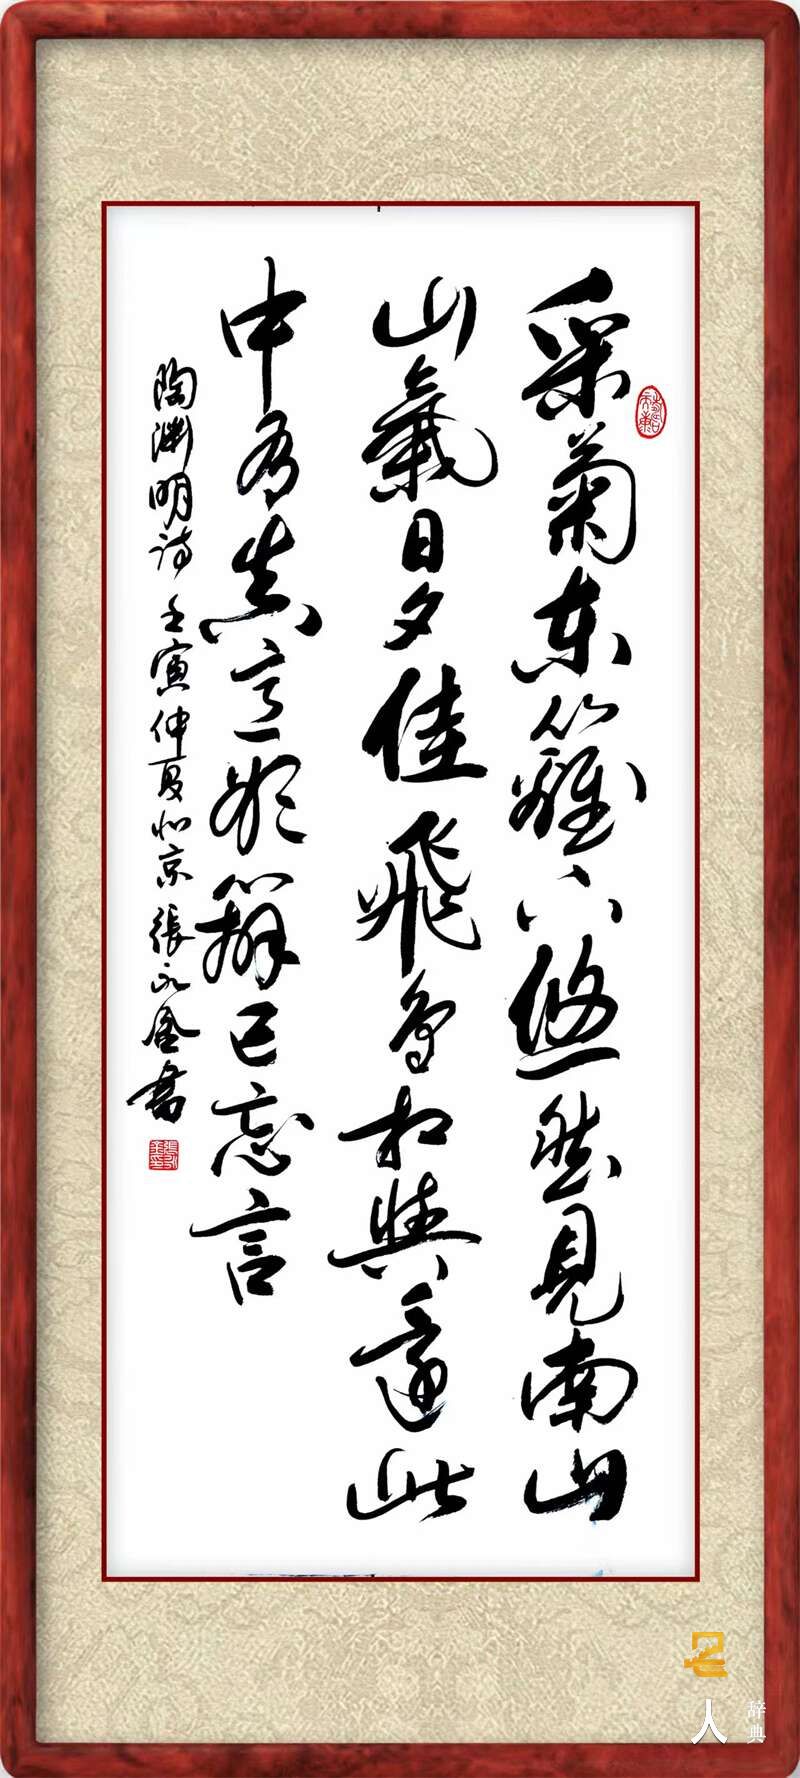 采菊东篱下悠然見南山
山氣日夕佳飛鸟相與還此
中有真意欲辩已忘言
陶渊明诗 壬寅仲夏北京 張永金書
名人
辞典